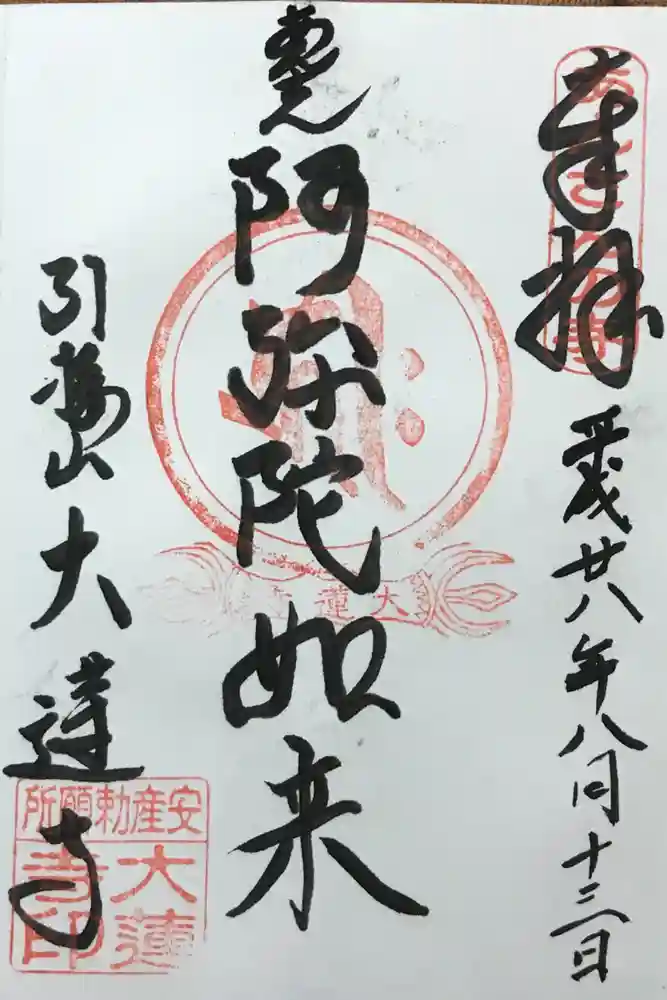 奉拝
平成廿八年八月十三日
阿弥陀如来
大蓮寺
引接山 大蓮寺
安産勅願所
大蓮寺印